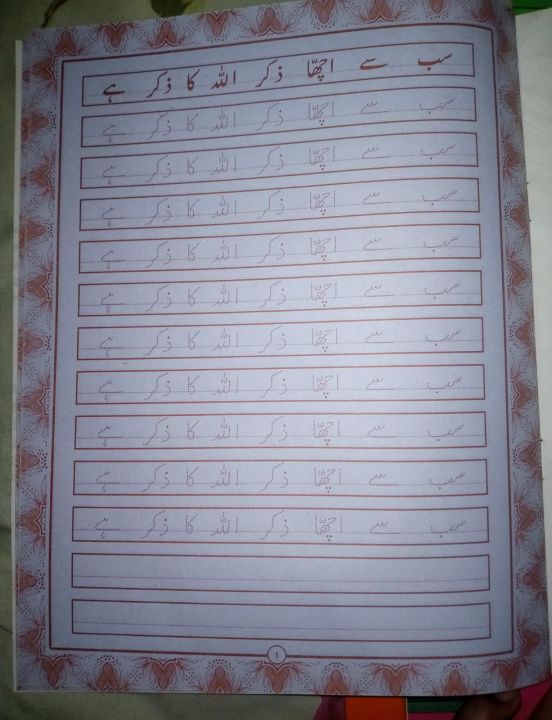 سب سے اچھّا ذکر اللہ کا ذکر ہے
سب سے اچھّا ذکر اللہ کا ذکر ہے
سب سے اچھّا ذکر اللہ کا ذکر ہے
سب سے اچھّا ذکر اللہ کا ذکر ہے
سب سے اچھّا ذکر اللہ کا ذکر ہے
سب سے اچھّا ذکر اللہ کا ذکر ہے
سب سے اچھّا ذکر اللہ کا ذکر ہے
سب سے اچھّا ذکر اللہ کا ذکر ہے
سب سے اچھّا ذکر اللہ کا ذکر ہے
سب سے اچھّا ذکر اللہ کا ذکر ہے
سب سے اچھّا ذکر اللہ کا ذکر ہے
۱